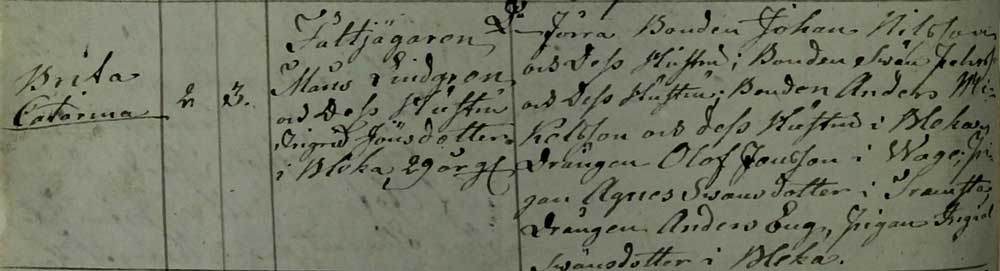 Brita
Catarina
2 3.
Fältjägaren
Måns Lindgren
och Dess Hustru
Ingrid Jönsdotter
i Bleka, 29 år gl
Förra Bonden Johan Nilsson
och Dess Hustru; Bonden Swän
och Dess Hustru; Bonden Anders Mi-
kelsson och dess Hustru i Bleka,
Drängen Olof Jonsson i Wage; Pi-
gan Agnes Swänsdotter i
Drängen Anders Eng, Pigan Ingrid
Swänsdotter i Bleka.